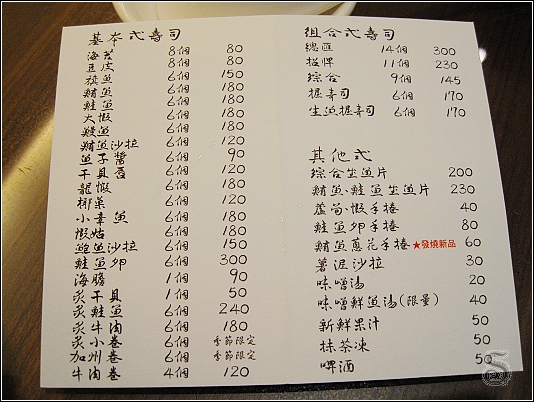 基本式壽司
海苔 8個 80
豆皮 8個 80
旗魚 6個 150
鮪魚 6個 180
鮭魚 6個 180
大蝦 6個 180
鰻魚 6個 180
鮪魚沙拉 6個 120
魚子醬 6個 90
干貝唇 6個 120
龍蝦 6個 180
椰菓 6個 120
小章魚 6個 180
蝦姑 6個 180
鮑魚沙拉 6個 150
鮭魚卵 6個 300
海膽 1個 90
炙干貝 1個 50
炙鮭魚 6個 240
炙牛肉 6個 180
炙小卷 6個 季節限定
加州卷 6個 季節限定
牛肉卷 4個 120
組合式壽司
總匯 14個 300
招牌 11個 230
綜合 9個 145
握壽司 6個 170
生魚握壽司 6個 170
其他式
綜合生魚片 200
鮪魚、鮭魚生魚片 230
蘆筍、蝦手捲 40
鮭魚卵手捲 80
鮪魚蔥花手捲 ★發燒新品 60
薯泥沙拉 30
味噌湯 20
味噌鮮魚湯(限量) 40
新鮮果汁 50
抹茶凍 50
啤酒 50